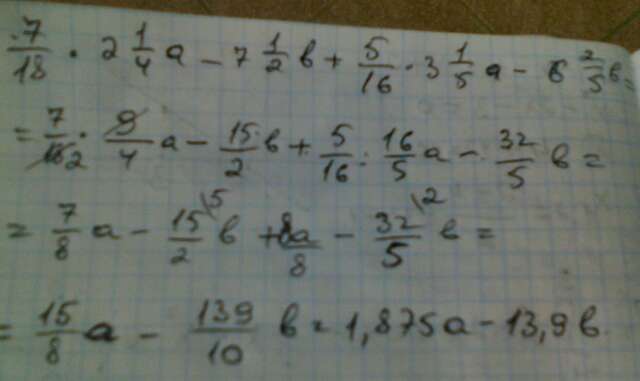 7/18 · 2 1/4 a - 7 1/2 в + 5/16 · 3 1/5 a - 6 2/5 в =
= 7/18 2 · 9/4 a - 15/2 в + 5/16 · 16/5 a - 32/5 в =
= 7/8 a - 15/2 \5 в + 8a/8 - 32/5 \2 в =
= 15/8 a - 139/10 в = 1,875a - 13,9 в